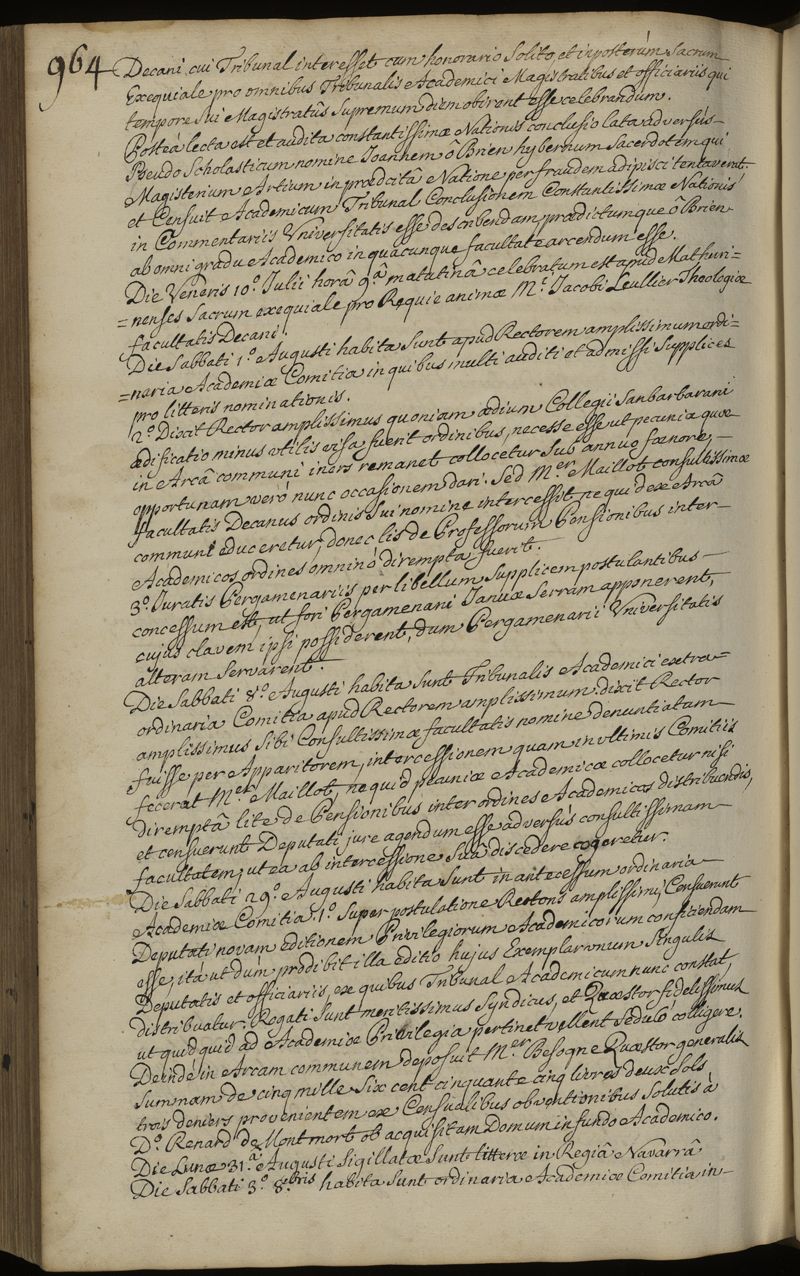 964
Decani, cui Tribunal interesset cum honorario solito, et in posterùm Sacrum
Exequiale pro omnibus Tribunalis Academici Magistratibus et officiariis qui
tempore sui Magistratûs supremum diem obirent esse celebrandum.
Posteà lecta est et audita constantissimæ Nationis conclusio lata adversùs
Pseudo Scholasticum nomine Joannem ô Brien hybernum Sacerdotem qui
Magisterium Artium in prædictâ Natione per fraudem adipisci tentaverat.
et Censuit Academicum Tribunal Conclusionem Constantissimæ Nationis
in Commentariis Universitatis esse describendam, prædictumque ô Brien
ab omni gradu Academico in quacunque facultate arcendum esse.
Die Veneris 10º Julii horâ 9ª matutinâ celebratum est apud Mathuri=
=nenses Sacrum exequiale pro Requie animæ Mri Jacobi Leullier Theologiæ
facultatis Decani.
Die Sabbati 1º Augusti habita sunt apud Rectorem amplissimum ordi=
=naria Academiæ Comitia in quibus multi auditi et admissi supplices
pro litteris nominationis.
2º Dixit Rector amplissimus quoniam ædium Collegii Sanbarbarani
ædificatio minus utilis visa fuerit ordinibus, necesse esse ut pecunia quæ
in Arcâ communi iners remanet collocetur sub annuo fœnore,
opportunam verò nunc occasionem dari. Sed Mer Maillot consultissimæ
facultatis Decanus ordinis sui nomine intercessit ne quid ex Arcâ
communi educeretur, donec lis de Professorum Pensionibus inter
Academicos ordines omninò dirempta fuerit.
3º Juratis Pergamenariis per libellum supplicem postulantibus
concessum est, ut fori Pergamenarii Januæ Serram apponerent,
cujus clavem ipsi possiderent, dum Pergamenarii Universitatis
alteram servarent.
Die Sabbati 8º Augusti habita sunt Tribunalis Academici extra=
ordinaria Comitia apud Rectorem amplissimum. dixit Rector
amplissimus sibi Consultissimæ facultatis nomine denuntiatam
fuisse per Apparitorem, intercessionem quam in ultimis Comitiis
fecerat Mer Maillot, ne quid pecuniæ Academicæ collocetur nisi
diremptâ lite de Pensionibus inter ordines Academicos distribuendis,
et censuerunt Deputati jure agendum esse adversùs consultissimam
facultatem, ut ea ab intercessione suâ discedere cogeretur.
Die Sabbati 29º Augusti habita sunt in antecessum ordinaria
Academiæ Comitia. 1º Super postulatione Rectoris amplissimi, Censuerunt
Deputati novam editionem Privilegiorum Academicorum conficiendam
esse, ita ut dum prodibit illa editio hujus Exemplarium singulis
Deputatis et officiariis, ex quibus Tribunal Academicum nunc constat,
distribuatur. Rogati sunt meritissimus Syndicus, et Quæstor fidelissimus
ut quidquid ad Academiæ Privilegia pertinet vellent sedulò colligere.
Deindè in Arcam communem deposuit Mer Besogne Quæstor generalis
summam de cinq mille six cent cinquante cinq livres deux sols
trois deniers provenientem ex Censualibus obventionibus solutis à
Dº Renard de Montmort ob acquisitam Domum in fundo Academico.
Die Lunæ 31ª Augusti sigillatæ sunt litteræ in Regiâ Navarrâ
Die Sabbati 3º 8bris habita sunt ordinaria Academiæ Comitia in